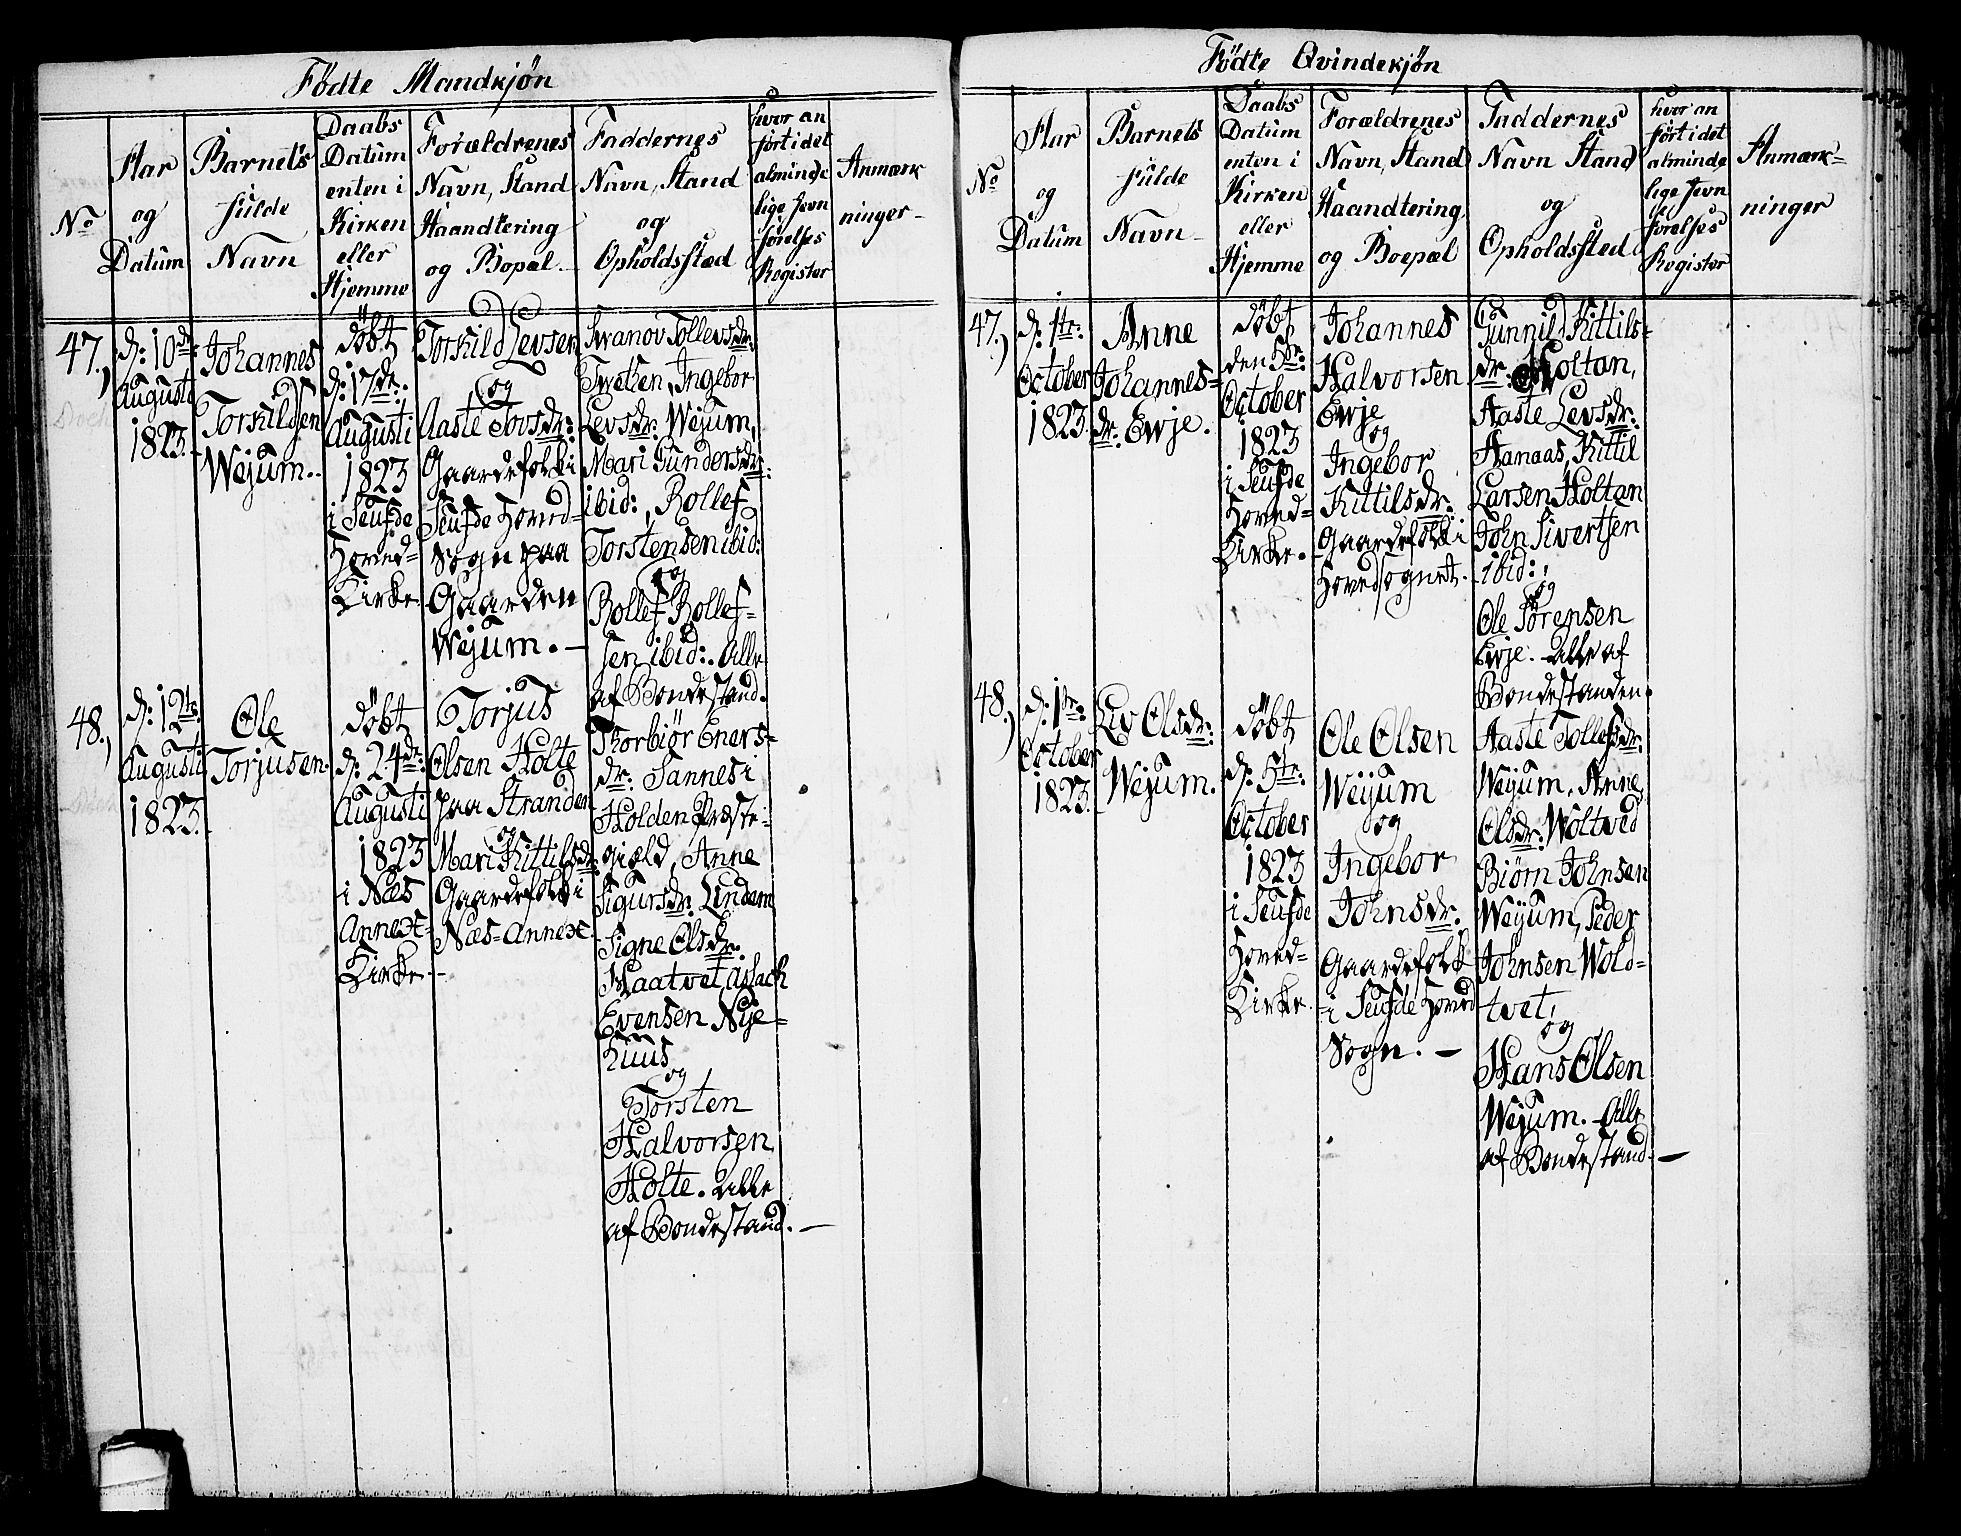 Födte Mandkjön
No
Aar
og
Datum
Barnets
fulde
Navn
Daabs
Datum
enten i
Kirken
eller
Hjemme
Forældrenes
Navn, Stand
Haandtering
og Bopæl.
Faddernes
Navn, Stand
og
Opholdssted
hvor an
fört i det
alminde
lige Jevn
förelses
Register
Anmærk
ninger
47.,
d: 10de
Augusti
1823.
Johannes
Torkildsen
Wejum.
döbt
d: 17de:
Augusti
1823
i Seufde
Hoved=
Kirke.
Torkild Levsen
og
Aaste Tovsdr:
Gaardefolk i
Seufde Hoved=
Sogn paa
Gaarden
Wejum. —
Swanov Tollevsdr:
Tweten, Ingebor
Levsdr: Wejum,
Mari Gundersdr:
ibid:, Rollef
Torstensen ibid:
og
Rollef Rollef=
sen ibid:. Alle
af Bondestand.
48.,
d: 12te:
Augusti
1823.
Ole
Torjusen.
döbt
d: 24de:
Augusti
1823
i Næs
Annext-
Kirke.
Torjus
Olsen Holte
paa Stranden
og
Mari Kittilsdr:
Gaardefolk i
Næs=Annext.
Thorbiör Eners=
dr: Sannes i
Holden Præste=
giæld, Anne
Sigursdr: Lindem
Signe Olsdr:
Haatvet, Aslach
Evensen Nye=
huus
og
Torsten
Halvorsen
Holte. Alle
af Bondestand. —
Födte Qvindekjön
No
Aar
og
Datum
Barnets
fulde
Navn
Daabs
Datum
enten i
Kirken
eller
Hjemme
Forældrenes
Navn, Stand
Haandtering
og Boepæl
Faddernes
Navn Stand
og
Opholdssted
hvor an
fört i det
alminde
lige Jevn
förelses
Register
Anmærk=
ninger
47.,
d: 1te:
October
1823.
Anne
Johannes=
dr: Ewje.
döbt
den 5te:
October
1823
i Seufde
Hoved=
Kirke.
Johannes
Halvorsen
Ewje
og
Ingebor
Kittilsdr:
Gaardefolk i
Hovedsognet.
Gunnild Kittils=
dr: Holtan,
Aaste Levsdr:
Aanaas, Kittil
Larsen Holtan
John Sivertsen
ibid:,
og
Ole Sörensen
Ewje. Alle af
Bondestanden.
48.,
d: 1te:
October
1823.
Liv Olsdr:
Wejum.
döbt
d: 5te:
October
1823
i Seufde
Hoved=
Kirke.
Ole Olsen
Weijum
og
Ingebor
Johnsdr:
Gaardefolk
i Seufde Hoved
Sogn. —
Aaste Tollefsdr:
Weijum, Anne
Olsdr: Woltved
Biörn Johnsen
Weijum, Peder
Johnsen Wold=
tvet,
og
Hans Olsen
Wejum. Alle
af Bondestand. —